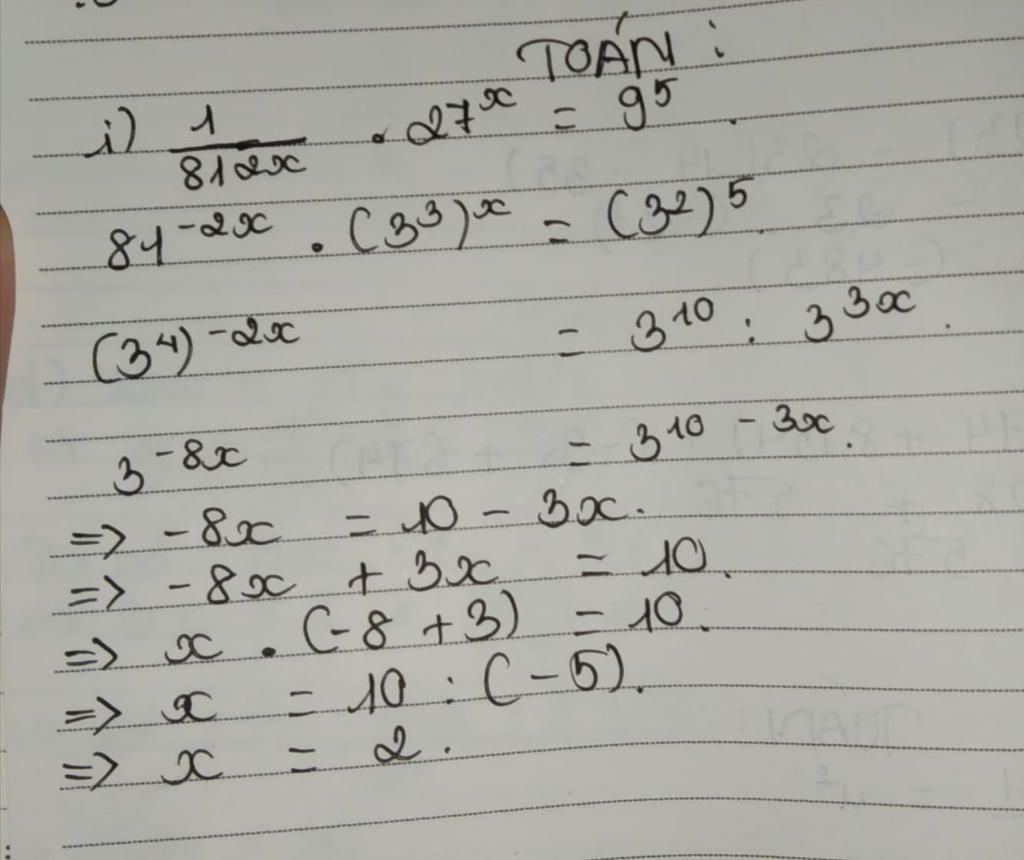 TOÁN :
i) 1/81^2x . 27^x = 9^5.
81^-2x . (3^3)^x = (3^2)^5.
(3^4)^-2x = 3^10 : 3^3x.
3^-8x = 3^10 - 3x.
=> -8x = 10 - 3x.
=> -8x + 3x = 10.
=> x . (-8 + 3) = 10.
=> x = 10 : (-5).
=> x = 2.